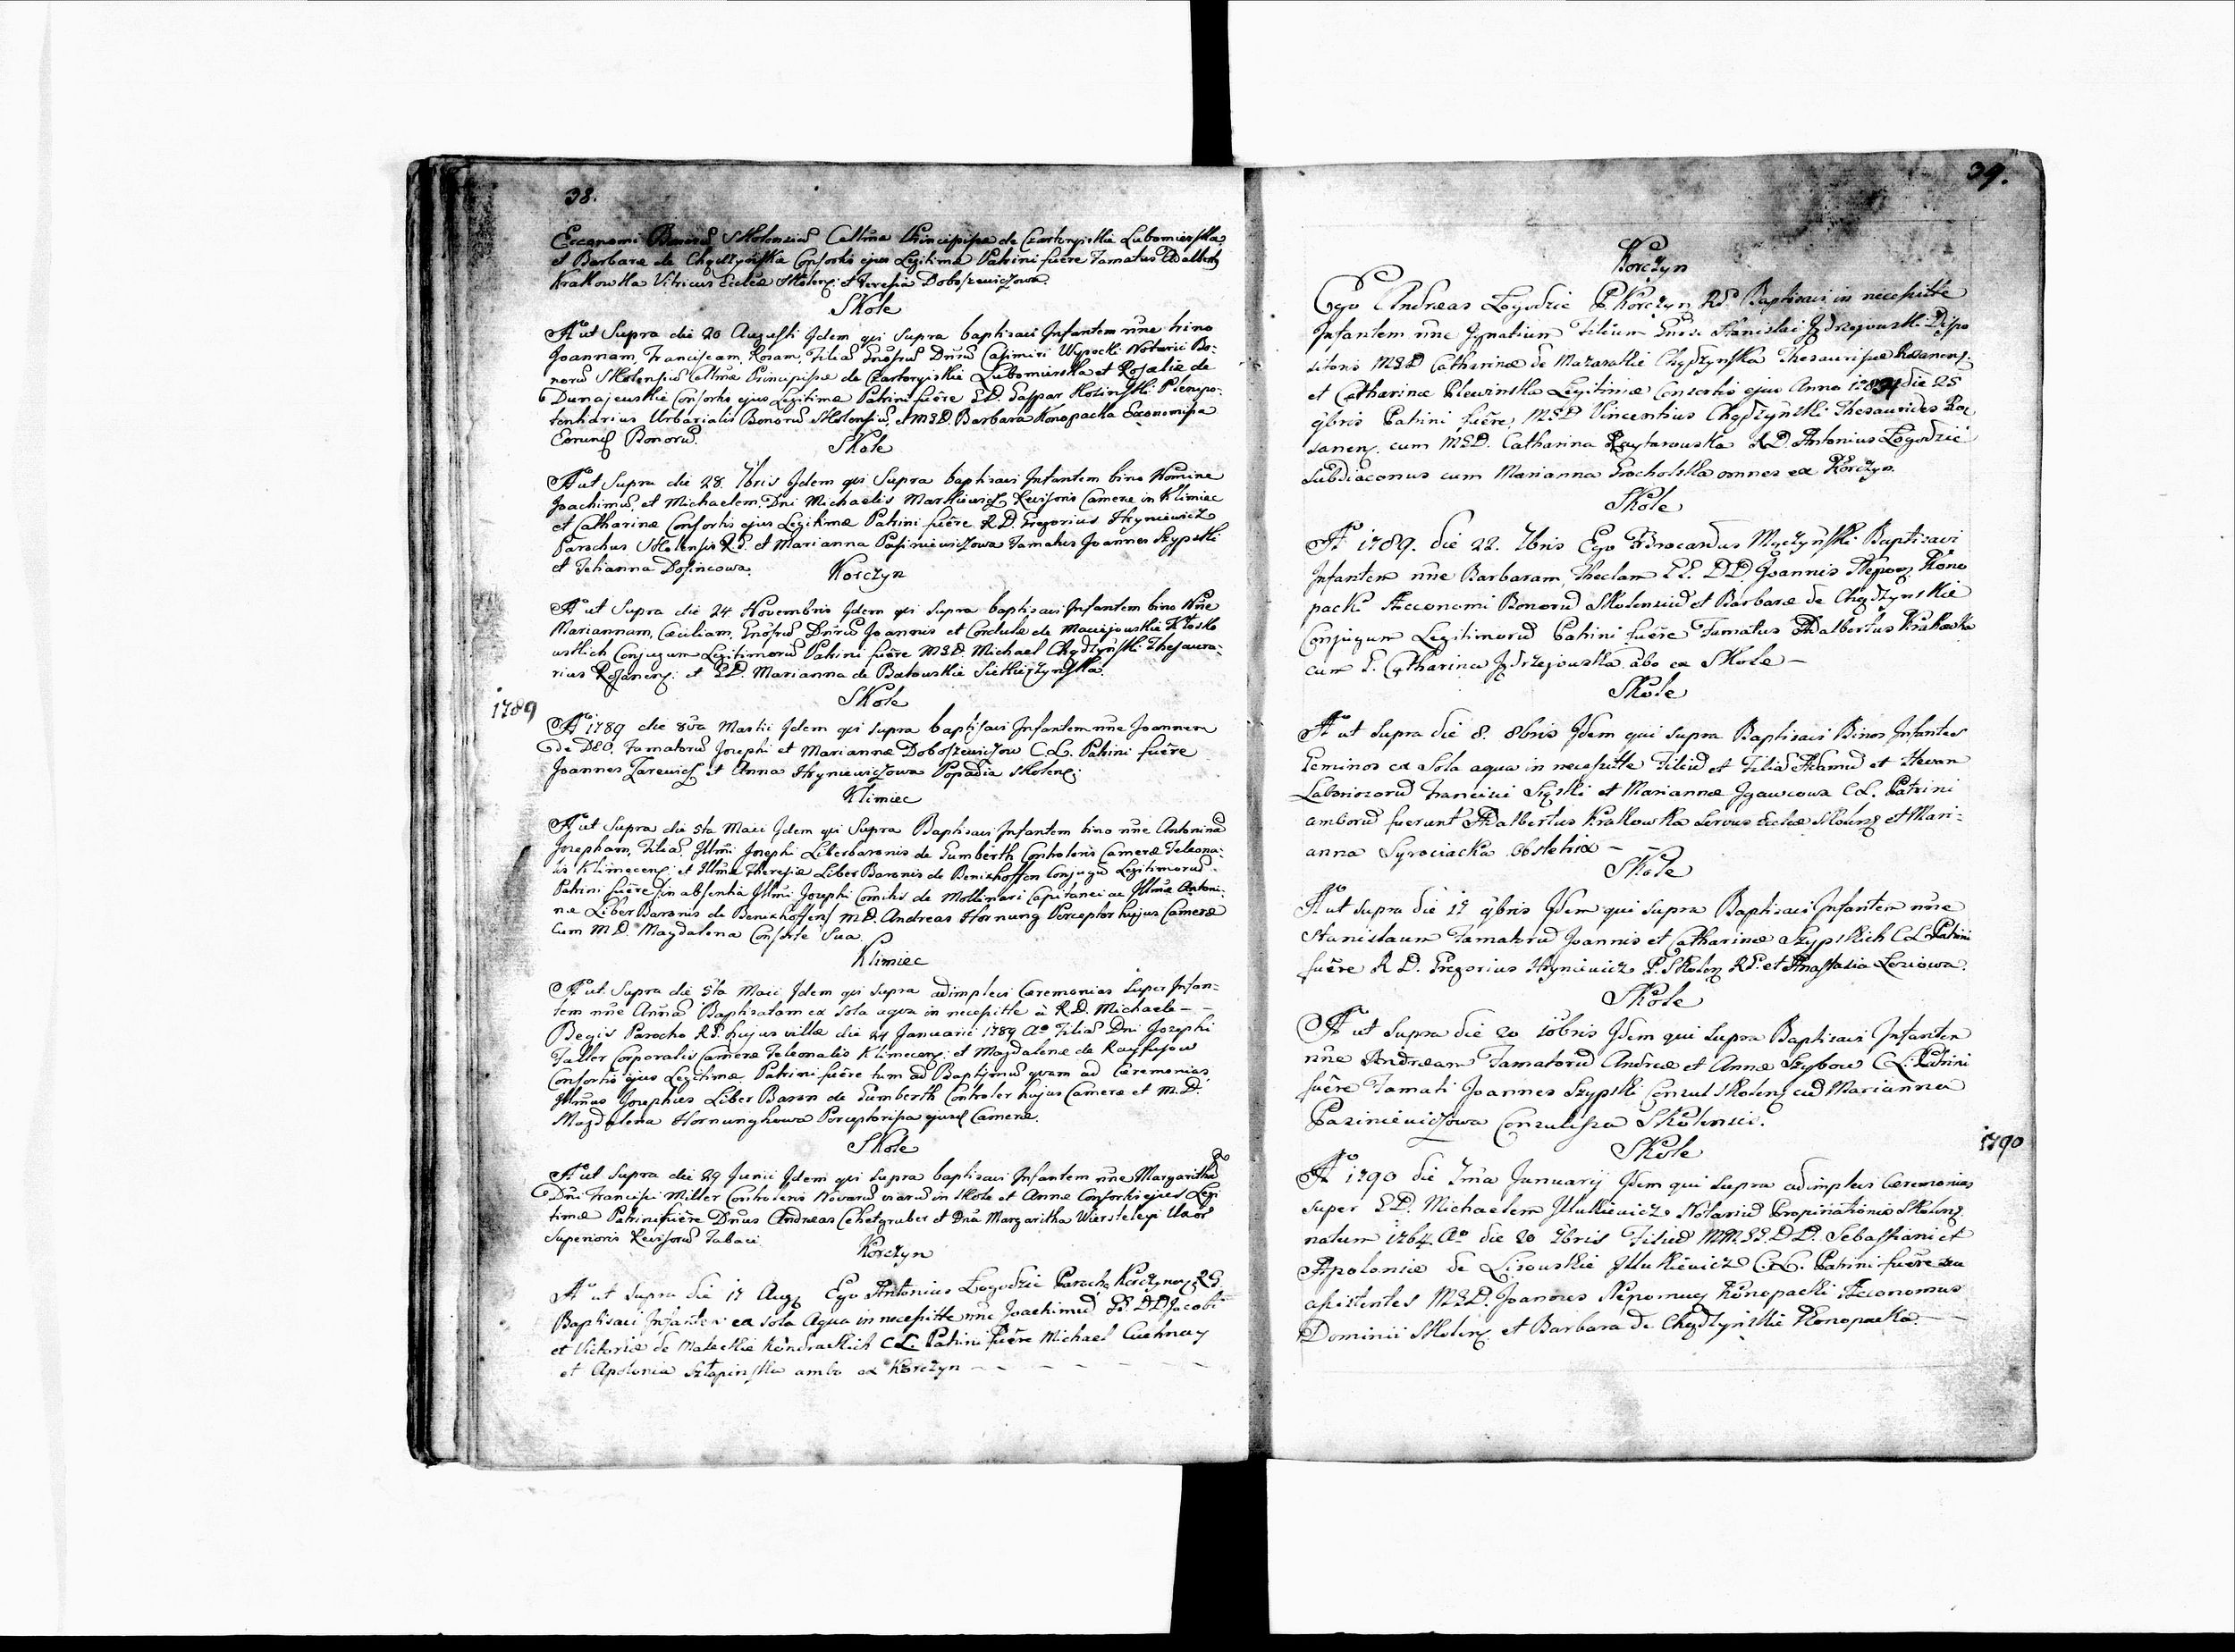 38.
Economi Bonorũ Skolensiũ Celsmæ Principissæ de Czartoryiskie Lubomirska
et Barbaræ de Chądzyńskie Consortis ejus Legitimæ Patrini fuêre Famatus Adalbert
Krakowka Vitricus Eccleæ Skolens: et Teresia Doboszewiczowa.
Skole
Aº ut Supra die 20 Augusti Jdem qui Supra baptisavi Infantem nñe trino
Joannam, Franciscam, Rosam, Filiã Gnosrũ Dnrũ Casimiri Wysocki Notarii Bo-
norũ Skolensiũ Celsmæ Principissæ de Czartoryiskie Lubomirska et Rosaliæ de
Dunajewskie Consortis ejus Legitimæ Patrini fuêre GD. Gaspar Kosinski Plenipo-
tentiarius Urbarialis Bonorũ Skolensiũ, et MGD. Barbara Konopacka Economissa
Eorund Bonorũ.
Skole
Aº ut Supra die 28. 7bris Jdem qui Supra baptisavi Infantem bino Nomine
Joachimũ, et Michaelem, Dni Michaelis Markiewicz Revisoris Cameræ in Klimiec
et Catharinæ Consortis ejus Legitimæ Patrini fuêre R.D. Gregorius Hryniewicz
Parochus Skolensis RG. et Marianna Pasiniewiczowa Famatus Joannes Szypski
et Tetianna Dosincowa.
Korczyn
Aº ut Supra die 24 Novembris Jdem qui supra baptisavi Infantem bino Nñe
Mariannam, Cæciliam, Gnosrũ Dnrũ Joannis et Cordulæ de Maciejowskie Kłosko
wskich Conjugum Legitimorũ Patrini fuêre MGD. Michael Chądzyński Thesaura-
rius Rosanens: et GD. Marianna de Bakowskie Siekierzyńska.
Skole
1789
Aº 1789 die 8va Martii Jdem qui supra baptisavi Infantem nñe Joannem
de DEO. Famatorũ Josephi et Mariannæ Doboszewiczow C.L. Patrini fuêre
Joannes Zarewicz et Anna Hryniewiczowa Popadia Skolens:
Klimiec
Aº ut Supra die 5ta Maii Jdem qui Supra Baptisavi Infantem bino nñe Antoninã
Josepham, Filiã Jllmi Josephi Liberbaronis de Gumberth Controloris Cameræ Teleona-
lis Klimecens: et Jllmæ Theresiæ Liber Baronis de Benixhoffen Conjugũ Legitimorũ
Patrini fuêre /in absentia Jllmi Josephi Comitis de Mollinari Capitanei ac Jllmæ Antoni-
næ Liber Baronis de Benixhoffen/ M.D. Andreas Hornung Perceptor hujus Cameræ
Cum M.D. Magdalena Consorte Sua.
Klimiec
Aº ut Supra die 5ta Maii Jdem qui supra adimplevi Cæremonias super Infan-
tem nñe Annã Baptisatam ex sola aqua in necessitte à R.D. Michaele
Begis Parocho RG. hujus villæ die 24 Januarii 1789 Aº Filiã Dni Josephi
Taller Corporalis Cameræ Teleonalis Klimecens: et Magdalenæ de
Consortis ejus Legitimæ Patrini fuêre tum ad Baptismũ quam ad Cæremonias
Jllmus Josephus Liber Baron de Gumberth Controler hujus Cameræ et M.D.
Magdalena Hornunghowa Perceptorissa ejusd Cameræ.
Skole
Aº ut Supra die 29 Junii Jdem qui supra baptisavi Infantem nñe Margarithã
Dni Francisci Miller Controloris Novarũ viarũ in Skole et Annæ Consortis ejus Legi
timæ Patrini fuêre Dnus Andreas Cehetgruber et Dna Margaritha Uxor
Superioris Revisorũ Tabaci.
Korczyn
Aº ut supra die 17 Aug Ego Antonius Łogodzic Paroch Korczynens RG.
Baptisavi Infantem ex sola Aqua in necessitte nñe Joachimũ GG. DD. Jacobi
et Victoriæ de Mateckie Kondrackich C.L. Patrini fuêre Michael Cuchnay
et Apolonia Sztapinska ambo ex Korczyn
39.
Korczyn
Ego Andreas Łogodzic P. Korczyn RG. Baptisavi in necessitte
Infantem nñe Jgnatium Filium Gnosi Stanislai Jędrzejowski Dispo
sitoris MGD Catharinæ de Mazarakie Chądzynska Thesaurissæ Rosanens.
et Catharinæ Plewinska Legitimæ Consortis ejus Anno 1789 die 25
9bris Patrini fuêre, MGD Vincentius Chądzyński Thesaurides Ro
sanens. cum MGD. Catharina Raytarowska R.D. Antonius Łogodzic
Subdiaconus cum Marianna Grocholska omnes ex Korczyn.
Skole
Aº 1789. die 22. 7bris Ego Brocardus Męczyński Baptisavi
Infantem nñe Barbaram, Theclam GG. DD. Joannis Nepom. Kono
packi Aeconomi Bonorũ Skolensiũ et Barbaræ de Chądzynskie
Conjugum Legitimorũ Patrini fuêre Famatus Adalbertus Krakowka
cum G. Catharina Jędrzejowska abo ex Skole
Skole
Aº ut supra die 8. 8bris Jdem qui supra Baptisavi Binos Infantes
Geminos ex Sola aqua in necessitte Filiũ et Filiã Adamũ et Hevam
Laboriosorũ Francisci et Mariannæ C.L. Patrini
amborũ fuerunt Adalbertus Krakowka Servus Eccleæ Skolens et Mari-
anna Syrociacka Obstetrix
Skole
Aº ut supra die 17 9bris Jdem qui supra Baptisavi Infantem nñe
Stanislaum Famatorũ Joannis et Catharinæ Szypskich C.L. Patrini
fuêre R.D. Gregorius Hryniewicz P. Skolens RG. et Anastasia Lesiowa.
Skole
Aº ut supra die 20 10bris Jdem qui supra Baptisavi Infantem
nñe Andream Famatorũ Andreæ et Annæ Szybow C.L. Patrini
fuêre Famati Joannes Szypski Consul Skolens cũ Marianna
Pasiniewiczowa Consulissa Skolensi.
Skole
1790
Aº 1790 die 1ma January Jdem qui supra adimplevi Cæremonias
super GD. Michaelem Jllukiewicz Notariũ Propinationis Skolens.
natum 1764. Aº die 20 7bris Filiũ MM.GG.DD. Sebastiani et
Apoloniæ de Lisowskie Jllukiewicz C.L. Patrini fuêre seu
assistentes MGD. Joannes Nepomuc Konopacki Aeconomus
Dominii Skolens. et Barbara de Chądzyńskie Konopacka.